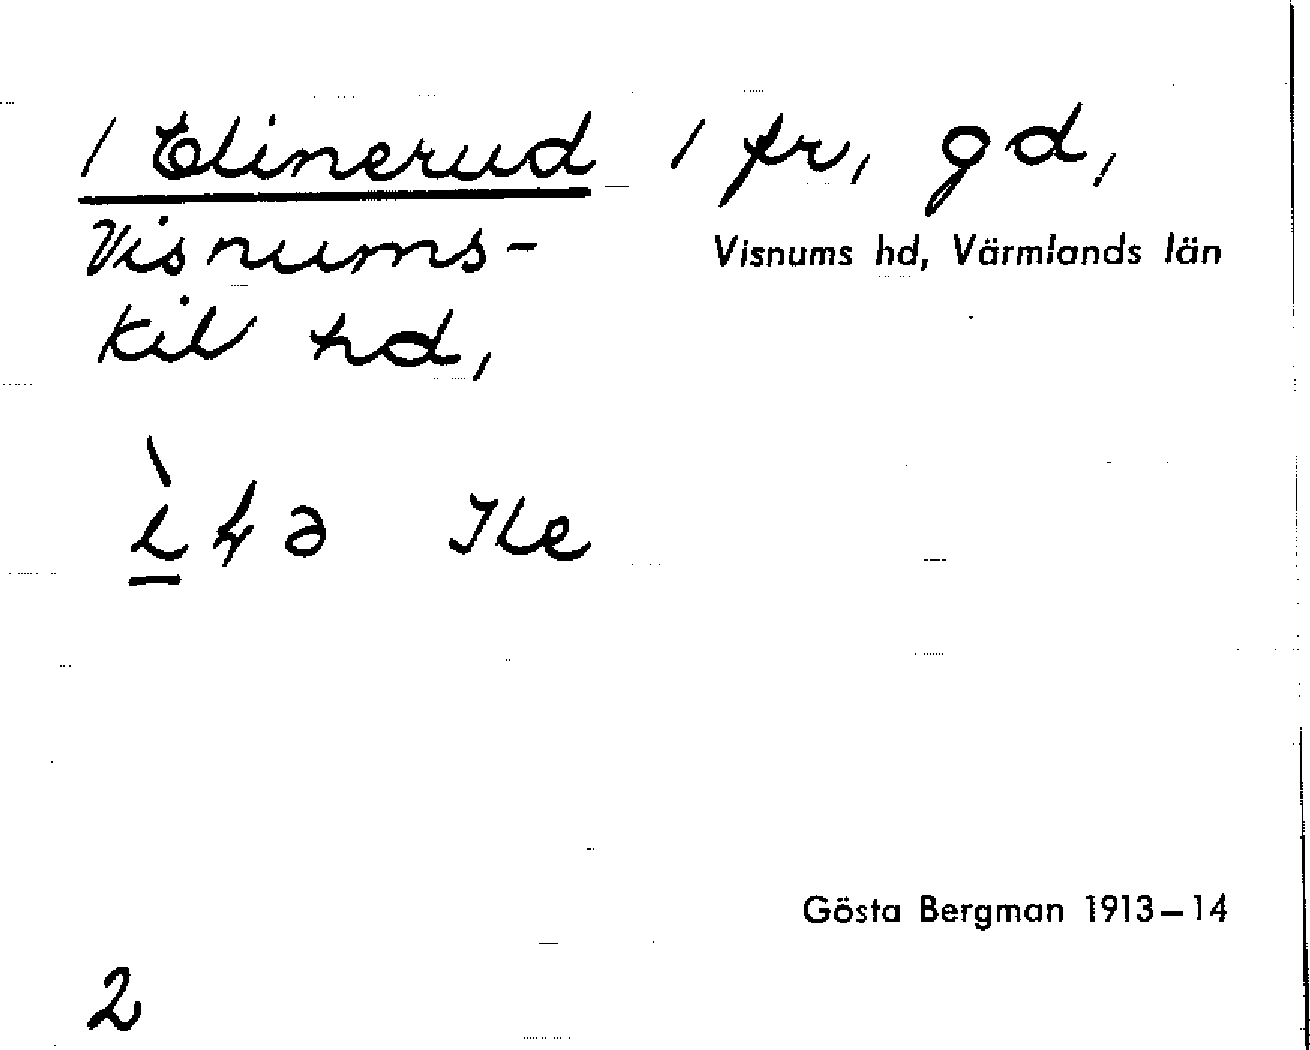 1 Elinerud 1 fr, gd,
Visnums-
Visnums hd, Värmlands län
kil hd,
Ile
Gösta Bergman 1913–14
2